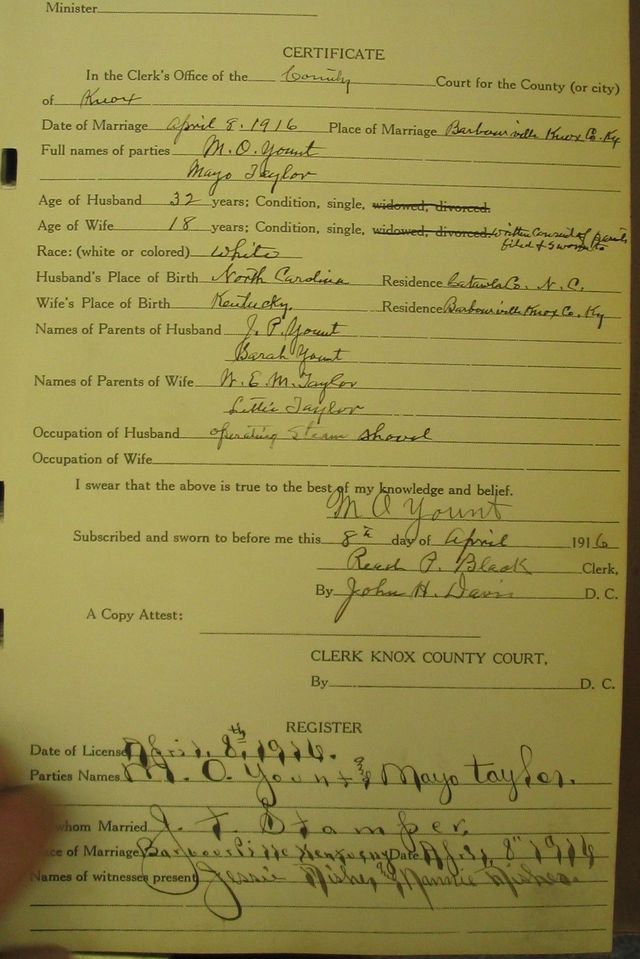 Minister
CERTIFICATE
In the Clerk's Office of the County Court for the County (or city)
of Knox
Date of Marriage April 8. 1916 Place of Marriage Barbourville Knox Co. Ky
Full names of parties M. O. Yount
Mayo Taylor
Age of Husband 32 years; Condition, single, widowed, divorced.
Age of Wife 18 years; Condition, single, widowed, divorced. Written Consent of parents
filed & sworn to
Race: (white or colored) White
Husband's Place of Birth North Carolina Residence Catawba Co. N. C.
Wife's Place of Birth Kentucky. Residence Barbourville Knox Co. Ky
Names of Parents of Husband J. P. Yount
Sarah Yount
Names of Parents of Wife W. E. M. Taylor
Lettie Taylor
Occupation of Husband operating Steam Shovel
Occupation of Wife
I swear that the above is true to the best of my knowledge and belief.
M O Yount
Subscribed and sworn to before me this 8th day of April 1916
Read P. Black Clerk,
By John H. Davis D. C.
A Copy Attest:
CLERK KNOX COUNTY COURT,
By D. C.
REGISTER
Date of License April, 8th, 1916.
Parties Names M. O. Yount & Mayo Taylor.
whom Married J. F. Stamper.
ace of Marriage Barbourville Kentucky Date April 8" 1916
Names of witnesses present Jessie & Nannie